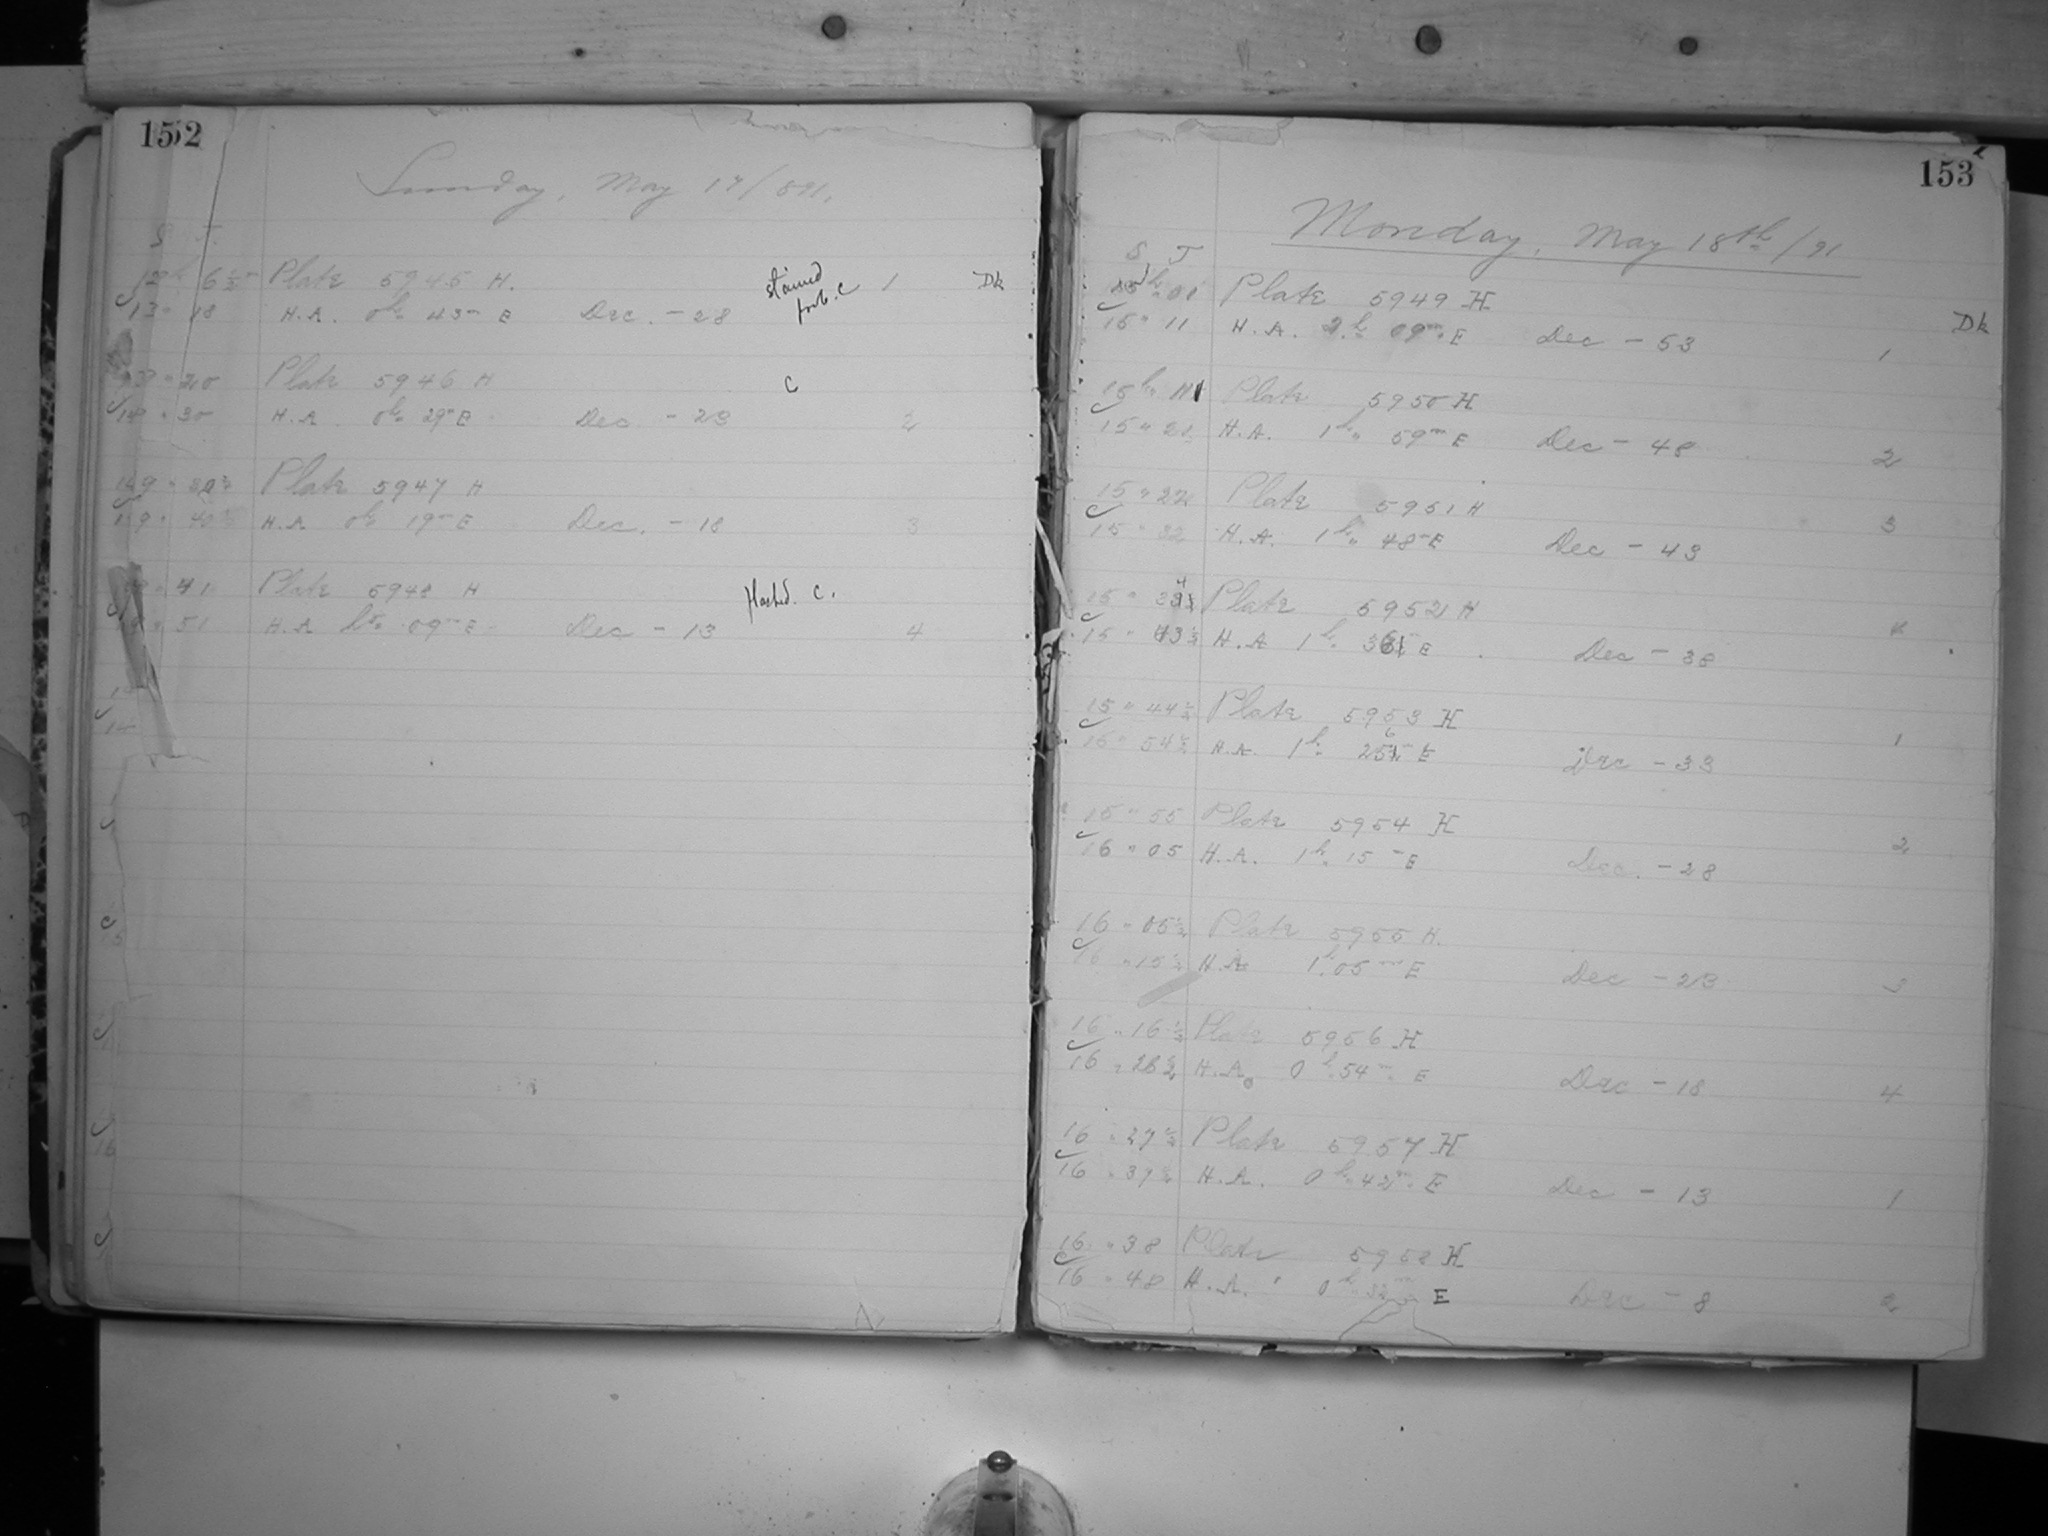 152
Sunday, May 17/891.
S. T.
6 1/2 Plate 5945 H. stained 1 Dk
13 " 18 H.A. 0h. 43m E Dec. - 28 prob. C
20 Plate 5946 H C
30 H.A. 0h. 29m E Dec - 23 2
Plate 5947 H
H.A 0h 19m E Dec. - 18 3
41 Plate 5948 H Hashed. C.
51 H.A 09m E Dec - 13 4
153
Monday, May 18th/91
S. T
15h. 01 Plate 5949 H Dk
15 " 11 H.A. 2h. 09m. E Dec - 53 1
15h. 11 Plate 5950 H
15 " 21 H.A. 1h. 59m E Dec - 48 2
15 " 22 Plate 5951 H 3
15 " 32 H.A. 1h. 48m E Dec - 43
15 " Plate 5952 H 4
15 " 43 1/2 H.A 1h. 36 E Dec - 38
15 " 44 1/2 Plate 5953 H 1
15 " 54 1/2 H.A. 1h. 25 E Dec - 33
15 " 55 Plate 5954 H 2
16 " 05 H.A. 1h. 15m E Dec. - 28
16 " 05 1/2 Plate 5955 H.
16 " 15 1/2 H.A. 1h. 05m E Dec - 23 3
16 " 16 1/2 Plate 5956 H
16 " 26 1/2 H.A. 0h. 54m. E Dec - 18 4
16 " 27 1/2 Plate 5957 H
16 " 37 1/2 H.A. 0h. 42m. E Dec - 13 1
16 " 38 Plate 5958 H
16 " 48 H.A. 0h 32m E Dec - 8 2